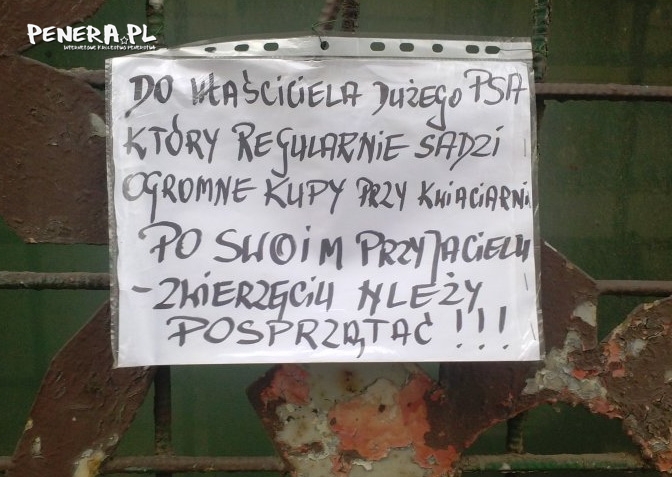 PENERA.PL
INTERNETOWE KRÓLESTWO PENERSTWA
DO WŁAŚCICIELA DUŻEGO PSA
KTÓRY REGULARNIE SADZI
OGROMNE KUPY PRZY KWIACIARNI
PO SWOIM PRZYJACIELU
-ZWIERZĘCIU NLEŻY
POSPRZĄTAĆ !!!